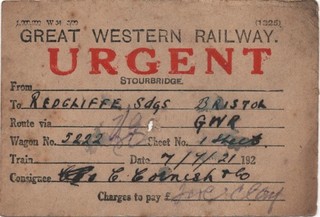 (1326)
GREAT WESTERN RAILWAY.
URGENT
STOURBRIDGE.
From
To REDCLIFFE Sdgs BRISTOL
Route via GWR
Wagon No. 5222 Sheet No. 1 Sheet
Train Date 7/7/21 192
Consignee C. Cornish & Co
Charges to pay £